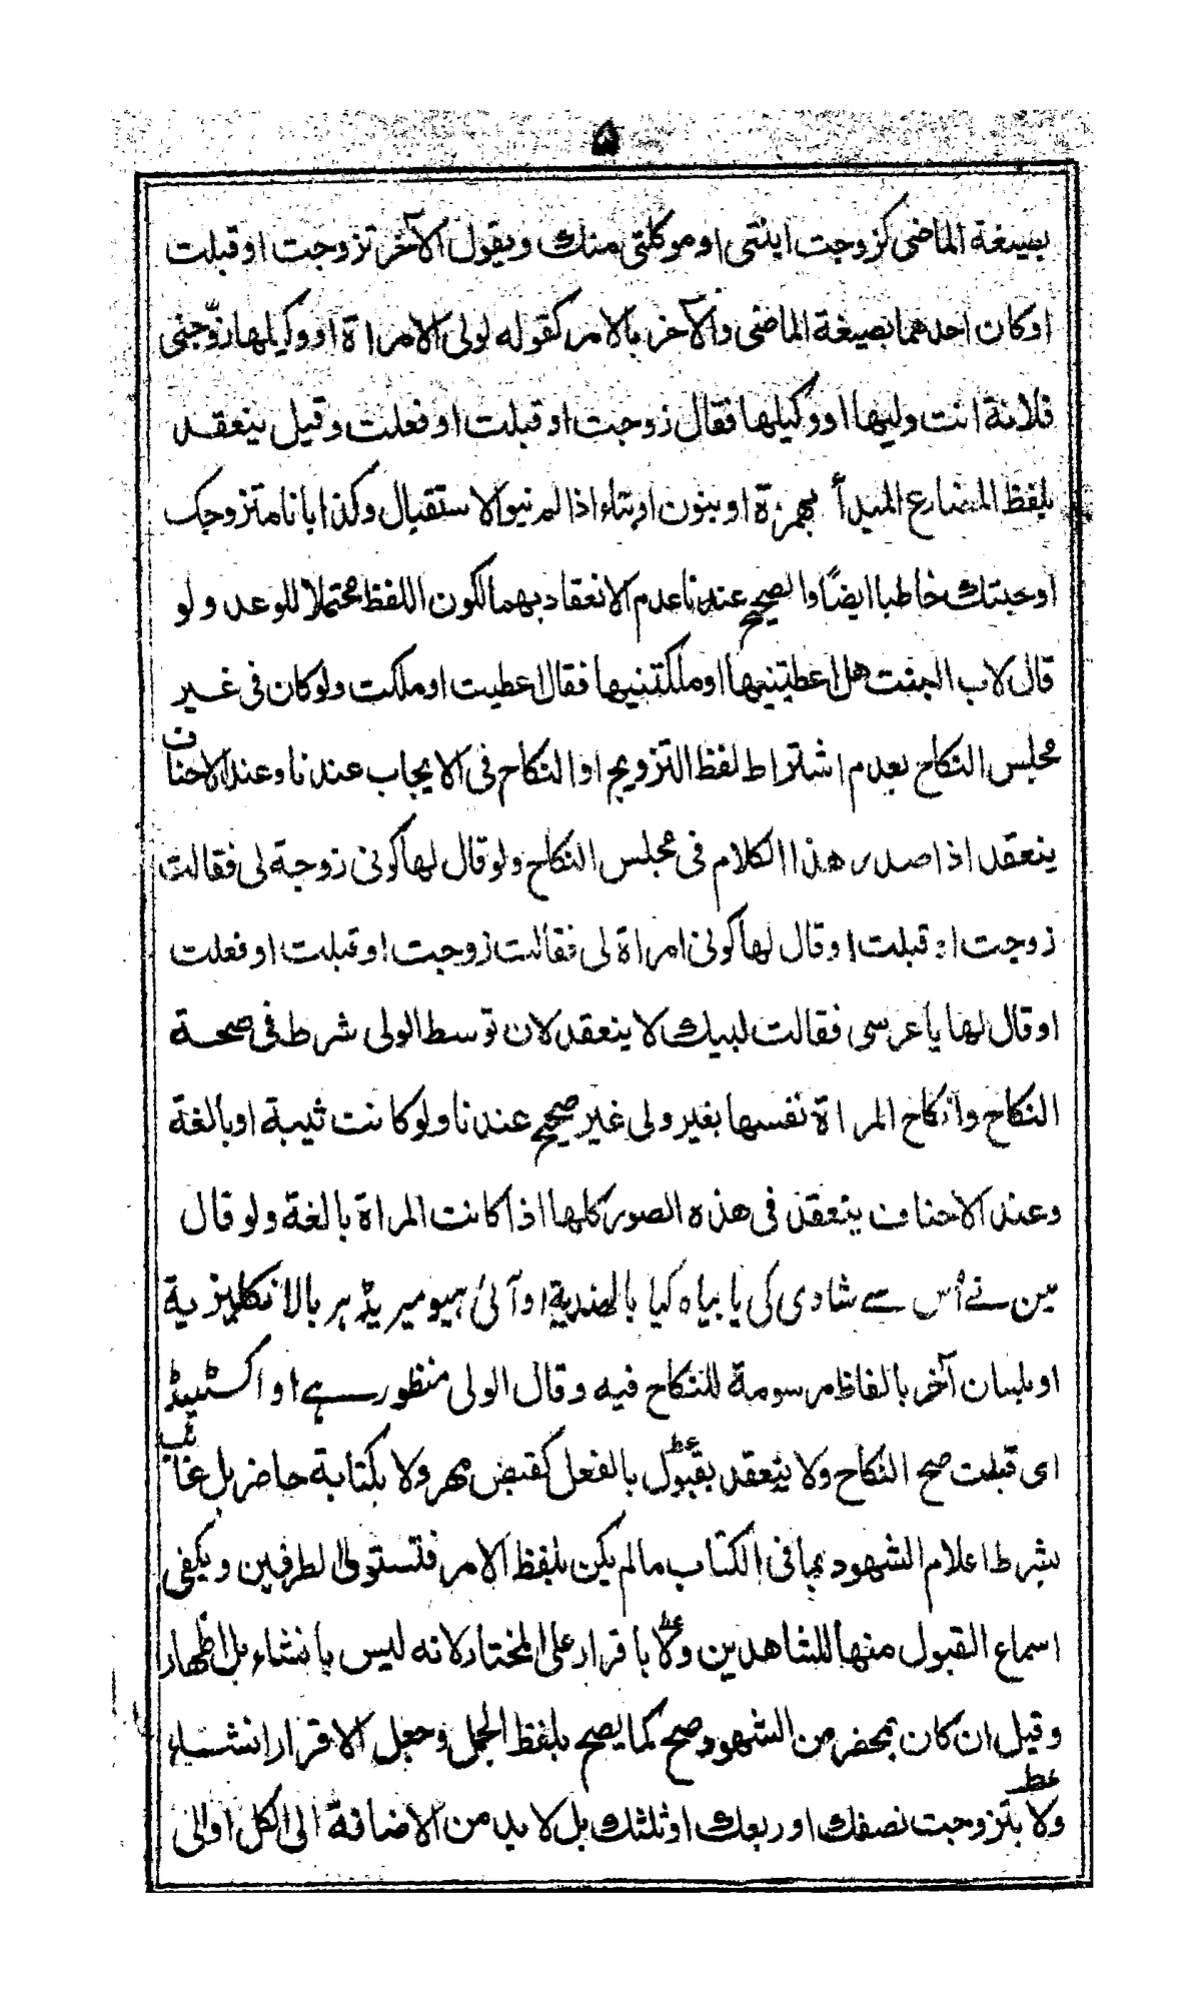 ۵
بصيغة الماضى كزوجت ابنتى او موكلتى منك ويقول الآخر تزوجت او قبلت
او كان احدهما بصيغة الماضى والآخر بالامر كقوله لولى الامراة او وكيلها زوّجنى
فلانة انت وليها او وكيلها فقال زوجت او قبلت او فعلت وقيل ينعقد
بلفظ المضارع المبدأ بهمزة او بنون او بتاء اذا لم ينو الاستقبال وكذا بانا متزوجك
او جئتك خاطبا ايضًا والصحيح عندنا عدم الانعقاد بهما لكون اللفظ محتملا للوعد ولو
قال لاب البنت هل اعطيتنيها او ملكتنيها فقال اعطيت او ملكت ولو كان فى غير
مجلس النكاح بعدم اشتراط لفظ التزويج او النكاح فى الايجاب عندنا وعند الاحناف
ينعقد اذا صدر هذا الكلام فى مجلس النكاح ولو قال لها كونى زوجة لى فقالت
زوجت او قبلت او قال لها كونى امراة لى فقالت زوجت او قبلت او فعلت
او قال لها يا عرسى فقالت لبيك لا ينعقد لان توسط الولى شرط فى صحة
النكاح وانكاح المراة نفسها بغير ولى غير صحيح عندنا ولو كانت ثيبة او بالغة
وعند الاحناف ينعقد فى هذه الصور كلها اذا كانت المراة بالغة ولو قال
مين نے اُس سے شادى كى يا بياه كيا بالهندية او آئى ہیو میریڈ ہر بالانكليزية
او بلسان آخر بالفاظ مرسومة للنكاح فيه وقال الولى منظور ہے او اكسٹیڈ
اى قبلت صح النكاح ولا ينعقد بقبول بالفعل كقبض مهر ولا بكتابة حاضر بل غائب
بشرط اعلام الشهود بما فى الكتاب ما لم يكن بلفظ الامر فتستولى الطرفين ويكفى
اسماع القبول منها للشاهدين ولا باقرار على المختار لانه ليس بانشاء بل اظهار
وقيل ان كان بمحضر من الشهود صح كما يصح بلفظ الجعل وجعل الاقرار انشاء
ولا بتزوجت نصفك او ربعك او ثلثك بل لا بد من الاضافة الى الكل او الى